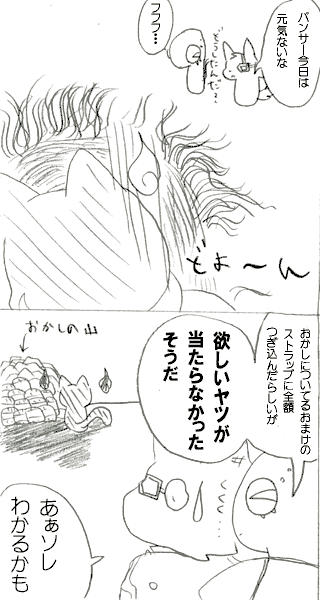 パンサー今日は
元気ないな
どうしたんだ?
フフフ…
どよ〜ん
おかしについてるおまけの
ストラップに全額
つぎ込んだらしいが
欲しいヤツが
当たらなかった
そうだ
おかしの山
あぁソレ
わかるかも